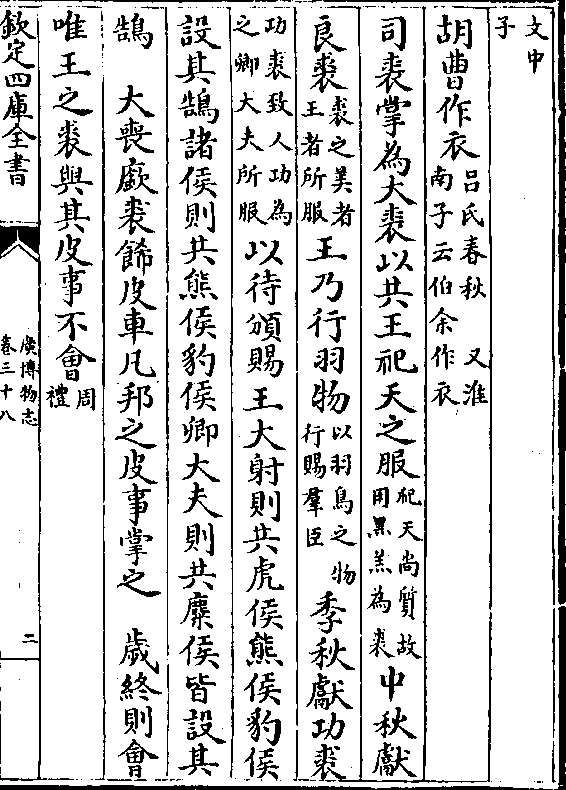 文中
子
胡曹作衣呂氏春秋 又淮
南子云伯余作衣
司裘掌為大裘以共王祀天之服祀天尚質故
用黑羔為裘中秋獻
良裘裘之美者
王者所服王乃行羽物以羽鳥之物
行賜羣臣季秋獻功裘
功裘致人功為
之卿大夫所服以待頒賜 王大射則共虎侯熊侯豹侯
設其鵠諸侯則共熊侯豹侯卿大夫則共麋侯皆設其
鵠 大喪廞裘飾皮車凡邦之皮事掌之 歲終則會
唯王之裘與其皮事不會周
禮
欽定四庫全書
廣博物志
卷三十八
二